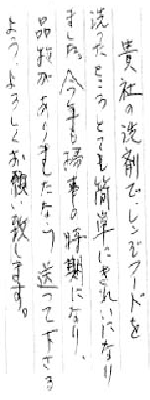 貴社の洗剤で、レンジフードを
洗ったところとても簡単にきれいになり
ました。今年も掃事の時期になり、
品物がありましたなら送って下さる
よう、よろしくお願い致します。